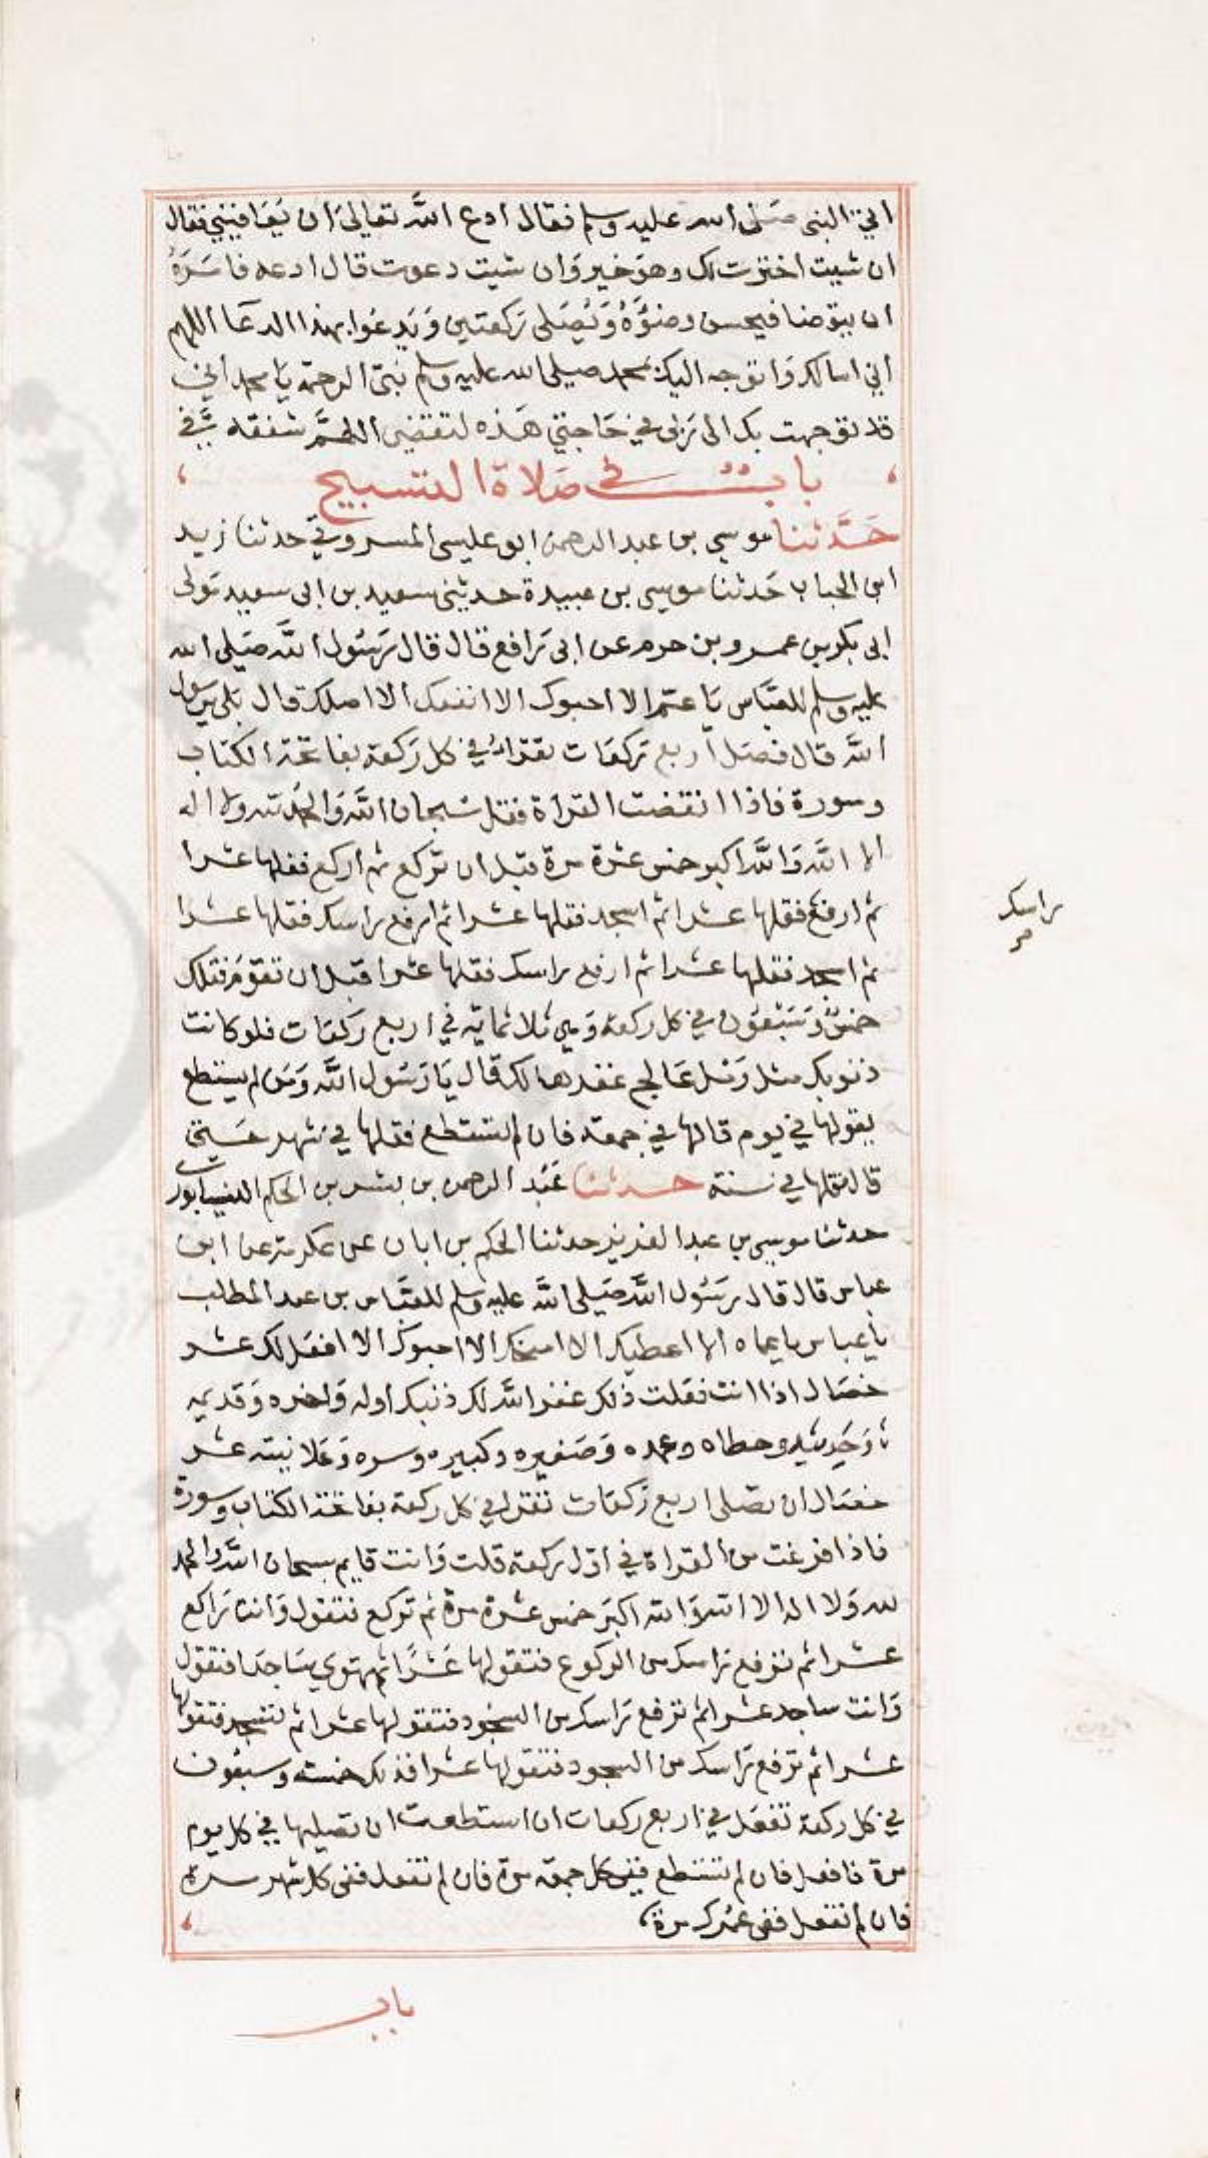 اتي النبي صلى الله عليه وسلم فقال ادع الله تعالى ان يعافيني فقال
ان شيت اخترت لك وهو خير وان شيت دعوت قال ادعه فامره
ان يتوضا فيحسن وضوءه ويصلى ركعتين ويدعوا بهذا الدعا اللهم
اني اسالك واتوجه اليك بمحمد صلى الله عليه وسلم نبي الرحمة يا محمد اني
قد توجهت بك الى ربى في حاجتي هذه لتقضى اللهم شفعه في
باب في صلاة التسبيح
حدثنا موسى بن عبد الرحمن ابو عيسى المسروقي حدثنا زيد
ابن الحباب حدثنا موسى بن عبيدة حدثنى سعيد بن ابى سعيد مولى
ابى بكر بن عمرو بن حزم عن ابى رافع قال قال رسول الله صلى الله
عليه وسلم للعباس يا عم الا احبوك الا انفعك الا اصلك قال بلى يرسول
الله قال فصل اربع ركعات تقرا في كل ركعة بفاتحة الكتاب
وسورة فاذا انقضت القراة فقل سبحان الله والحمد لله ولا اله
الا الله والله اكبر خمس عشرة مرة قبل ان تركع ثم اركع فقلها عشرا
ثم ارفع فقلها عشرا ثم اسجد فقلها عشرا ثم ارفع راسك فقلها عشرا
ثم اسجد فقلها عشرا ثم ارفع راسك فقلها عشرا قبل ان تقوم فتلك
خمس وسبعون في كل ركعة وهي ثلاثماية في اربع ركعات فلو كانت
ذنوبك مثل رمل عالج غفرها لك قال يا رسول الله ومن لم يستطع
يقولها في يوم قالها في جمعة فان لم تستطع فقلها في شهر حتى
قال فقلها في سنة حدثنا عبد الرحمن بن بشر بن الحكم النيسابوري
حدثنا موسى بن عبد العزيز حدثنا الحكم بن ابان عن عكرمة عن ابن
عباس قال قال رسول الله صلى الله عليه وسلم للعباس بن عبد المطلب
يا عباس يا عماه الا اعطيك الا امنحك الا احبوك الا افعل لك عشر
خصال اذا انت فعلت ذلك غفر الله لك ذنبك اوله واخره وقديمه
وحديثه وخطاه وعمده وصغيره وكبيره وسره وعلانيته عشر
خصال ان تصلى اربع ركعات تقرا في كل ركعة بفاتحة الكتاب وسورة
فاذا فرغت من القراة في اول ركعة قلت وانت قايم سبحان الله والحمد
لله ولا اله الا الله والله اكبر خمس عشرة مرة ثم تركع فتقول وانت راكع
عشرا ثم ترفع راسك من الركوع فتقولها عشرا ثم تهوي ساجدا فتقول
وانت ساجد عشرا ثم ترفع راسك من السجود فتقولها عشرا ثم تسجد فتقولها
عشرا ثم ترفع راسك من السجود فتقولها عشرا فذلك خمسة وسبعون
في كل ركعة تفعل في اربع ركعات ان استطعت ان تصليها في كل يوم
مرة فافعل فان لم تستطع ففي كل جمعة مرة فان لم تفعل ففى كل شهر مرة
فان لم تفعل ففى عمرك مرة
راسك
باب